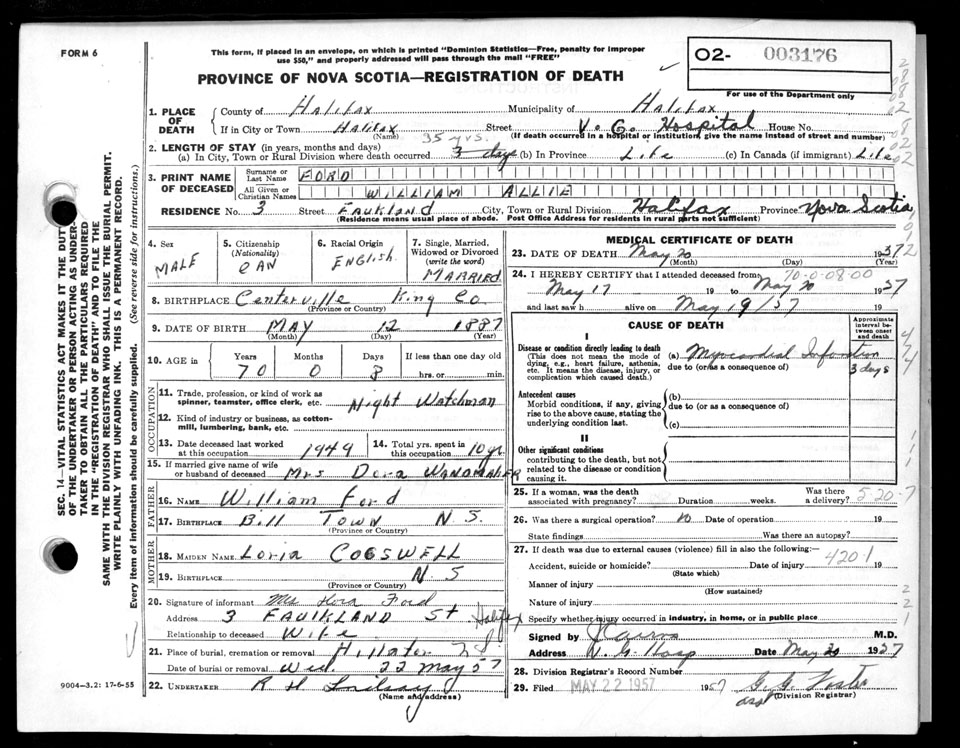 FORM 6
This form, if placed in an envelope, on which is printed "Dominion Statistics—Free, penalty for improper
use $50," and properly addressed will pass through the mail "FREE"
PROVINCE OF NOVA SCOTIA—REGISTRATION OF DEATH
O2- 003176
For use of the Department only
1. PLACE OF DEATH
County of Halifax Municipality of Halifax
If in City or Town Halifax (Name) Street V. G. Hospital House No.
(If death occurred in a hospital or institution, give the name instead of street and number)
2. LENGTH OF STAY (in years, months and days) 35 yrs.
(a) In City, Town or Rural Division where death occurred 3 days (b) In Province Life (c) In Canada (if immigrant) Life
3. PRINT NAME OF DECEASED
Surname or Last Name FORD
All Given or Christian Names WILLIAM ALLIE
RESIDENCE No. 3 Street FAUKLAND City, Town or Rural Division Halifax Province Nova Scotia
(Residence means usual place of abode. Post Office Address for residents in rural parts not sufficient)
4. Sex MALE
5. Citizenship (Nationality) CAN
6. Racial Origin ENGLISH
7. Single, Married, Widowed or Divorced (write the word) MARRIED
8. BIRTHPLACE Centerville King Co
(Province or Country)
9. DATE OF BIRTH MAY 12 1887
(Month) (Day) (Year)
10. AGE in Years Months Days If less than one day old
70 0 8 hrs. or min.
OCCUPATION
11. Trade, profession, or kind of work as spinner, teamster, office clerk, etc. Night Watchman
12. Kind of industry or business, as cotton-mill, lumbering, bank, etc.
13. Date deceased last worked at this occupation 1949
14. Total yrs. spent in this occupation 10 yr
15. If married give name of wife or husband of deceased Mrs Dora
FATHER
16. NAME William Ford
17. BIRTHPLACE Bill Town N S.
(Province or Country)
MOTHER
18. MAIDEN NAME Loria COGSWELL
19. BIRTHPLACE N S
(Province or Country)
20. Signature of informant Mrs Ford
Address 3 FAULKLAND St Halifax
Relationship to deceased Wife
21. Place of burial, cremation or removal
Date of burial or removal Wed. 22 May 57
22. UNDERTAKER R H Lindsay
(Name and address)
MEDICAL CERTIFICATE OF DEATH
23. DATE OF DEATH May 20 1957
(Month) (Day) (Year)
24. I HEREBY CERTIFY that I attended deceased from 70-0-08-00
May 17 19 to May 20 1957
and last saw h alive on May 19/57 19
CAUSE OF DEATH
Approximate interval between onset and death
I
Disease or condition directly leading to death
(This does not mean the mode of dying, e.g., heart failure, asthenia, etc. It means the disease, injury, or complication which caused death.)
(a) Myocardial Infarction 3 days
due to (or as a consequence of)
Antecedent causes
Morbid conditions, if any, giving rise to the above cause, stating the underlying condition last.
(b)
due to (or as a consequence of)
(c)
II
Other significant conditions
contributing to the death, but not related to the disease or condition causing it.
25. If a woman, was the death associated with pregnancy? Duration weeks. Was there a delivery? 520-7
26. Was there a surgical operation? no Date of operation 19
State findings Was there an autopsy?
27. If death was due to external causes (violence) fill in also the following:— 420-1
Accident, suicide or homicide? Date of injury 19
(State which)
Manner of injury
(How sustained)
Nature of injury
Specify whether injury occurred in industry, in home, or in public place
Signed by M.D.
Address V. G. Hosp Date May 20 1957
28. Division Registrar's Record Number
29. Filed MAY 22 1957 1957 G. G. Foster
(Division Registrar)
SEC. 14—VITAL STATISTICS ACT MAKES IT THE DUTY
OF THE UNDERTAKER OR PERSON ACTING AS UNDER-
TAKER TO OBTAIN ALL THE PARTICULARS REQUIRED
IN THE "REGISTRATION OF DEATH" AND TO FILE THE
SAME WITH THE DIVISION REGISTRAR WHO SHALL ISSUE THE BURIAL PERMIT.
WRITE PLAINLY WITH UNFADING INK. THIS IS A PERMANENT RECORD.
Every item of information should be carefully supplied. (See reverse side for instructions.)
9004—3.2: 17-6-55